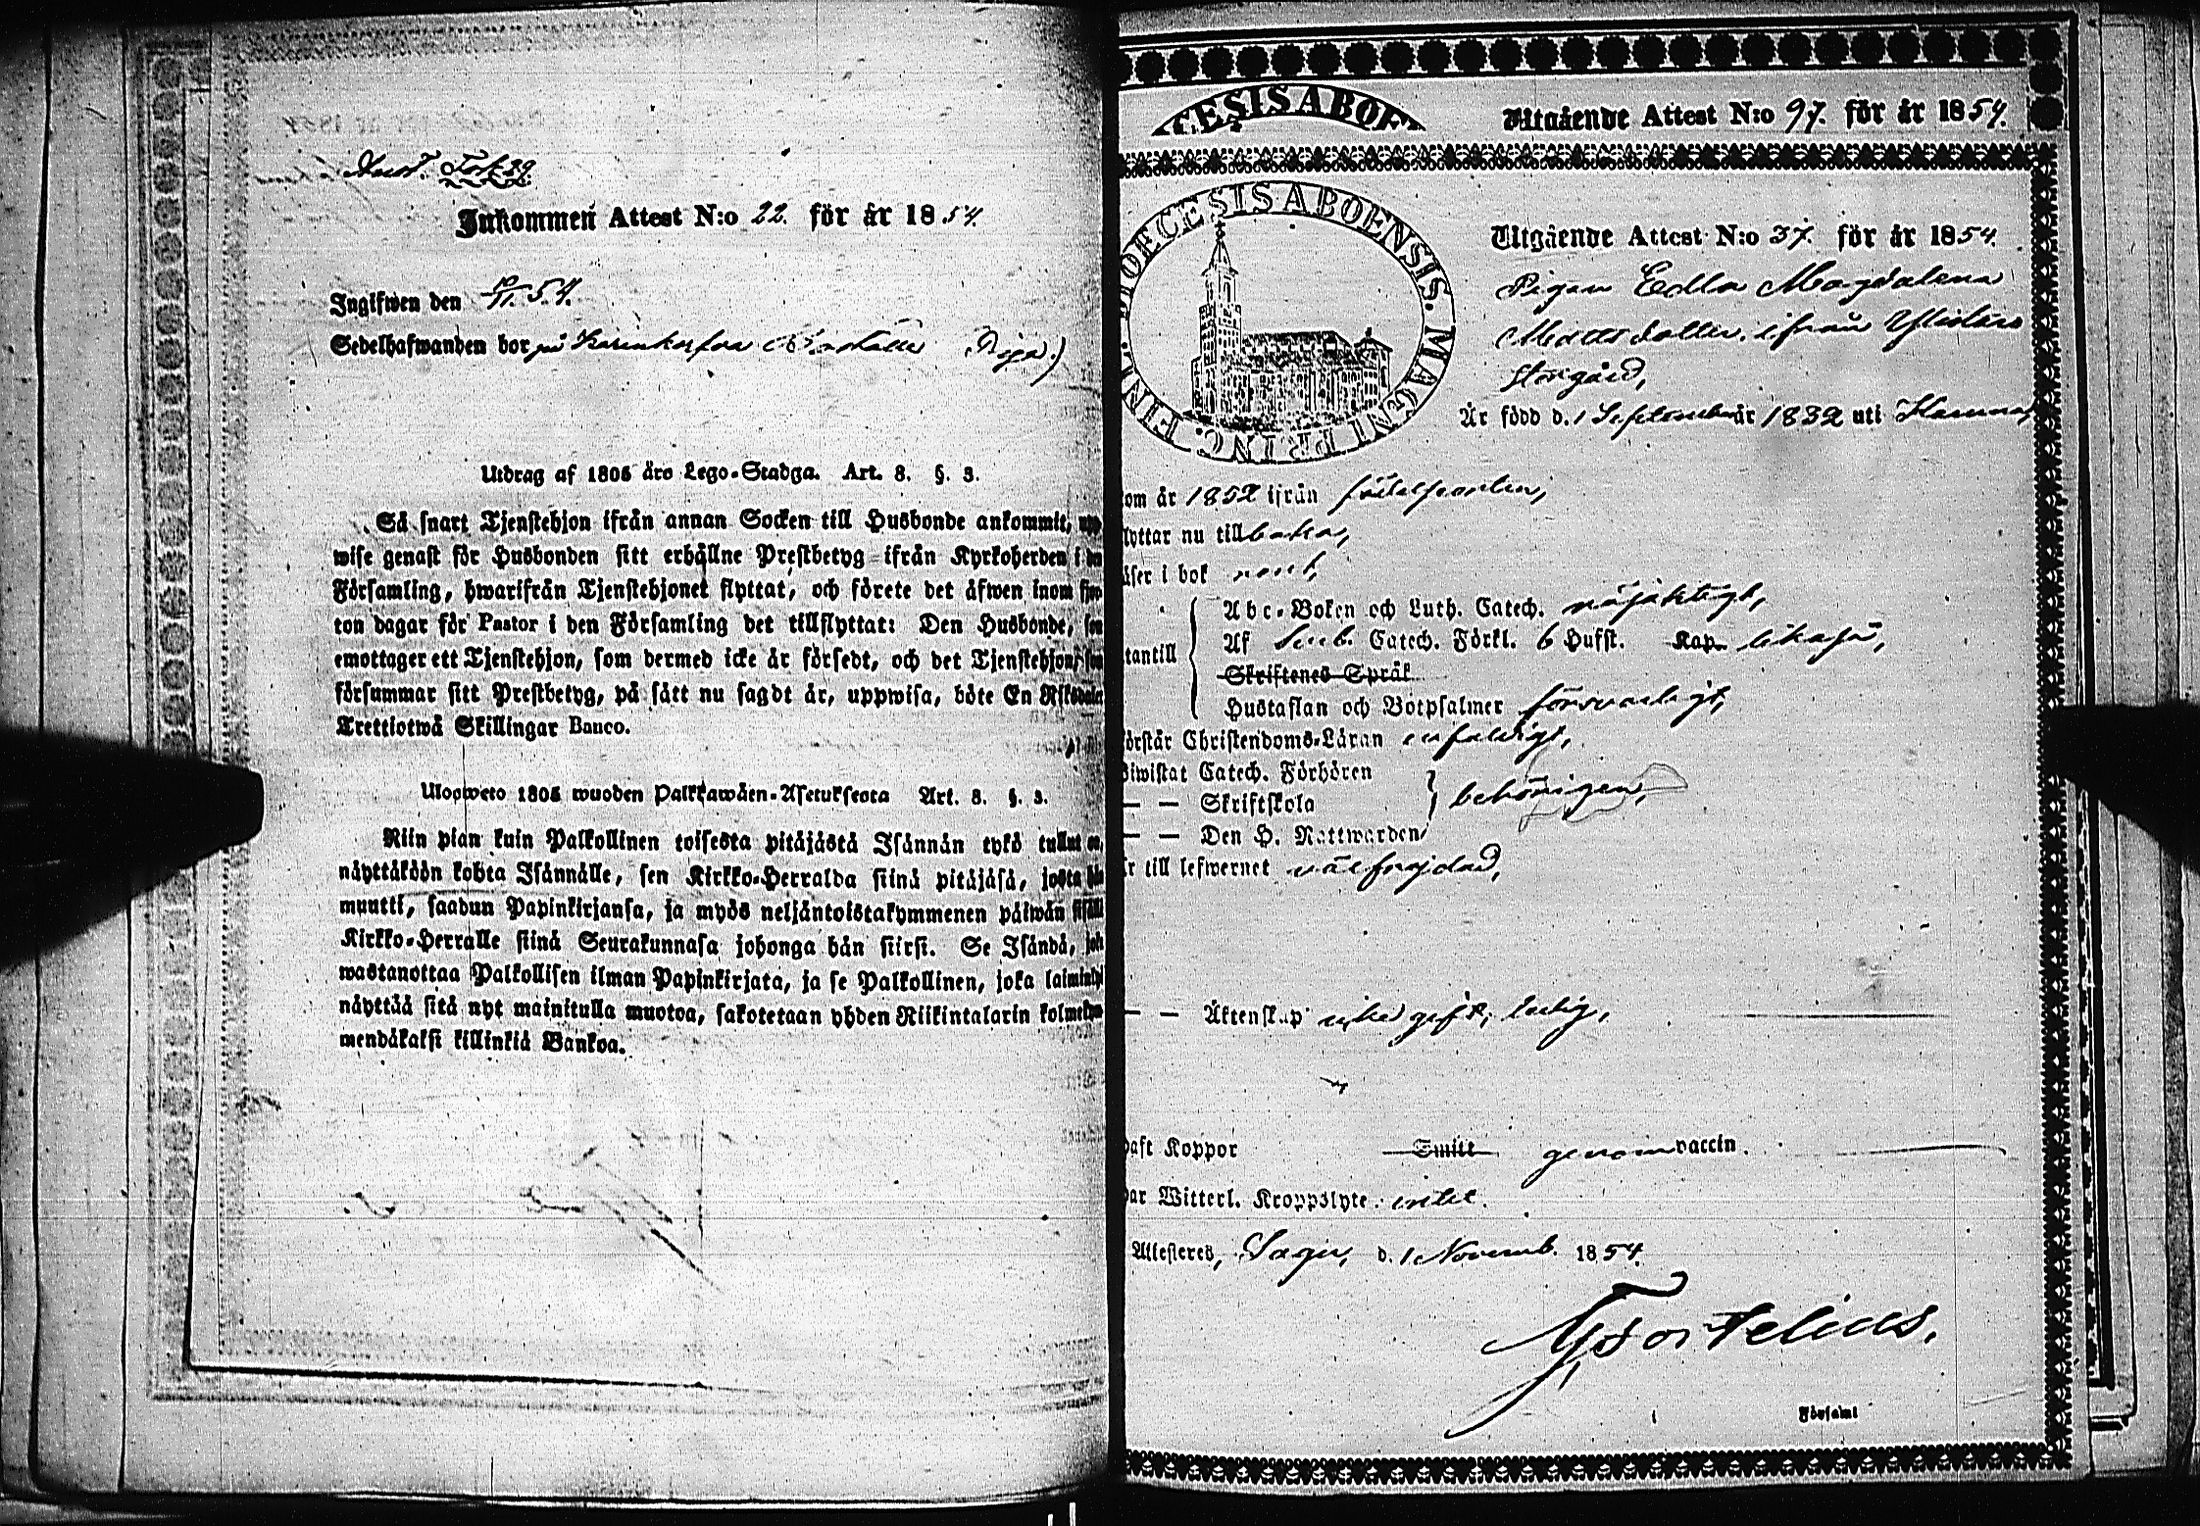 Inkommen Attest N:o 22. för år 1854.
Ingifwen den 10/11 54.
Sedelhafwanden bor på
Utdrag af 1805 års Lego-Stadga. Art. 8. §. 3.
Så snart Tjenstehjon ifrån annan Socken till Husbonde ankommit, upp
wise genast för Husbonden sitt erhållne Prestbetyg ifrån Kyrkoherden i
Församling, hwarifrån Tjenstehjonet flyttat, och förete det äfwen inom fjor
ton dagar för Pastor i den Församling det tillflyttat: Den Husbonde, som
emottager ett Tjenstehjon, som dermed icke är försedt, och det Tjenstehjon, som
försummar sitt Prestbetyg, på sätt nu sagdt är, uppwisa, böte En Riksdaler
Trettiotwå Skillingar Banco.
Ulosweto 1805 wuoden Palkkawäen-Asetuksesta Art. 8. §. 3.
Niin pian kuin Palkollinen toisesta pitäjästä Isännän tykö tullut on,
näyttäköön kohta Isännälle, sen Kirkko-Herralda siinä pitäjäsä, josta hän
muutti, saadun Papinkirjansa, ja myös neljäntoistakymmenen päiwän sisällä
Kirkko-Herralle siinä Seurakunnasa johonga hän siirsi. Se Isändä, joka
wastanottaa Palkollisen ilman Papinkirjata, ja se Palkollinen, joka laiminlyö
näyttää sitä nyt mainitulla muotoa, sakotetaan yhden Riikintalarin kolmekym
mendäkaksi killinkiä Bankoa.
ESIS ABOE
Utgående Attest N:o 97. för år 1854.
DIOECESIS ABOENSIS. MAGNI PRINC. FINL.
Utgående Attest N:o 37. för år 1854.
Pigan Edla Magdalena
Matts dotter, ifrån
Storgård,
Är född d. 1 September år 1832 uti
om år 1852 ifrån födelseorten,
lyttar nu tillbaka,
äser i bok rent,
Abc-Boken och Luth. Catech. nöjaktigt,
Af Catech. Förkl. 6 Hufst. Kap. likaså,
tantill
Skriftenes Språk
Hustaflan och Botpsalmer försvarligt,
örstår Christendoms-Läran enfaldigt,
iwistat Catech. Förhören
— — Skriftskola behörigen,
— — Den H. Nattwarden
r till lefwernet välfrejdad,
— — Äktenskap icke gift, ledig,
aft Koppor Smitt genom vaccin.
ar Witterl. Kroppslyte intet.
Attesteres, Sagu, d. 1 Novemb. 1854.
Församl